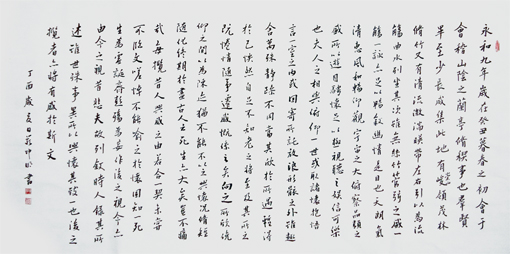 永和九年歲在癸丑暮春之初會于
會稽山陰之蘭亭脩稧事也羣賢
畢至少長咸集此地有峻領茂林
脩竹又有清流激湍暎帶左右引以為流
觴曲水列坐其次雖無絲竹管弦之盛一
觴一詠亦足以暢敘幽情是日也天朗氣
清惠風和暢仰觀宇宙之大俯察品類之
盛所以遊目騁懷足以極視聽之娛信可樂
也夫人之相與俯仰一世或取諸懷抱悟
言一室之內或因寄所託放浪形骸之外雖趣
舍萬殊靜躁不同當其欣於所遇暫得
於己怏然自足不知老之將至及其所之
既惓情隨事遷感慨係之矣向之所欣俛
仰之間以為陳迹猶不能不以之興懷況脩短
隨化終期於盡古人云死生亦大矣豈不痛
哉每攬昔人興感之由若合一契未嘗
不臨文嗟悼不能喻之於懷固知一死
生為虛誕齊彭殤為妄作後之視今亦
由今之視昔悲夫故列敘時人錄其所
述雖世殊事異所以興懷其致一也後之
攬者亦將有感於斯文
丁酉歲夏日 書